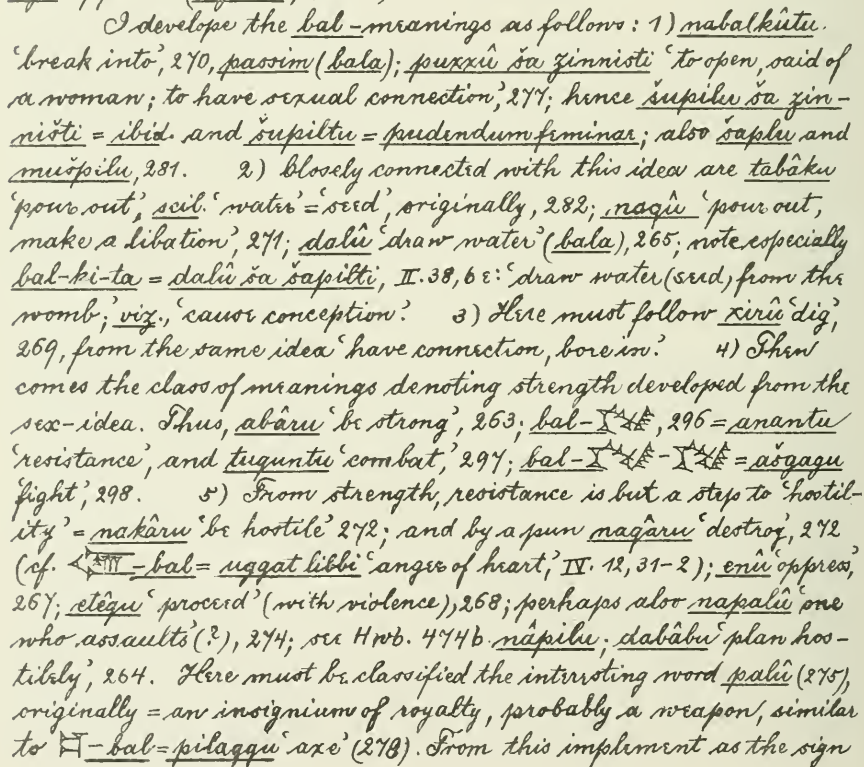 I develope the bal-meanings as follows: 1) nabalkûtu.
‘break into’, 270, passim (bala); puxxû ša zinnisti ‘to open, said of
a woman; to have sexual connection’, 277; hence šupilu ša zin-
ništi = ibid. and šupiltu = pudendum feminae; also šaplu and
mušpilu, 281. 2) Closely connected with this idea are tabâku
‘pour out’, scil. ‘water’ = ‘seed’, originally, 282; naqû ‘pour out,
make a libation’, 271; dalû ‘draw water’ (bala), 265; note especially
bal-ki-ta = dalû ša šapilti, II. 38, 6 e: ‘draw water (seed) from the
womb’; viz., ‘cause conception’. 3) Here must follow xirû ‘dig’,
269, from the same idea ‘have connection, bore in’. 4) Then
comes the class of meanings denoting strength developed from the
sex-idea. Thus, abâru ‘be strong’, 263; bal-, 296 = anantu
‘resistance’, and tuguntu ‘combat’, 297; bal- - = ašgagu
‘fight’, 298. 5) From strength, resistance is but a step to ‘hostil-
ity’ = nakâru ‘be hostile’ 272; and by a pun nagâru ‘destroy’, 272
(cf. -bal = uggat libbi ‘anger of heart’, IV. 12, 31-2); enû ‘oppress’,
267; etêqu ‘proceed’ (with violence), 268; perhaps also napalû ‘one
who assaults’ (?), 274; see Hwb. 474b nâpilu; dabâbu ‘plan hos-
tilely’, 264. Here must be classified the interesting word palû (275),
originally = an insignium of royalty, probably a weapon, similar
to -bal = pilaqqu ‘axe’ (278). From this implement as the sign